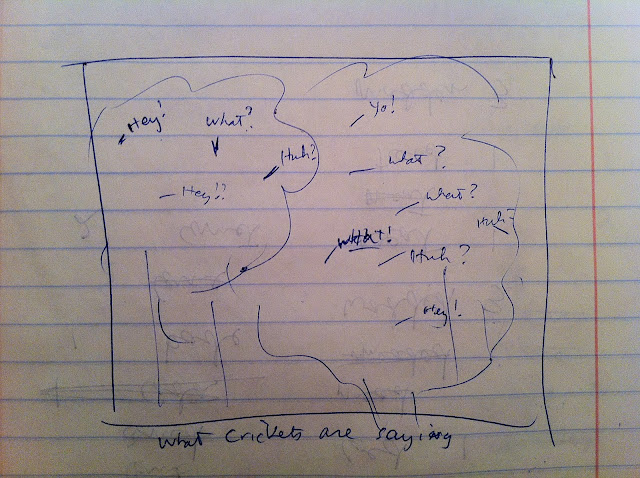 Hey!
What?
Huh?
Hey!?
Yo!
What?
What?
Huh?
WHAt!
Huh?
Hey!
What crickets are saying